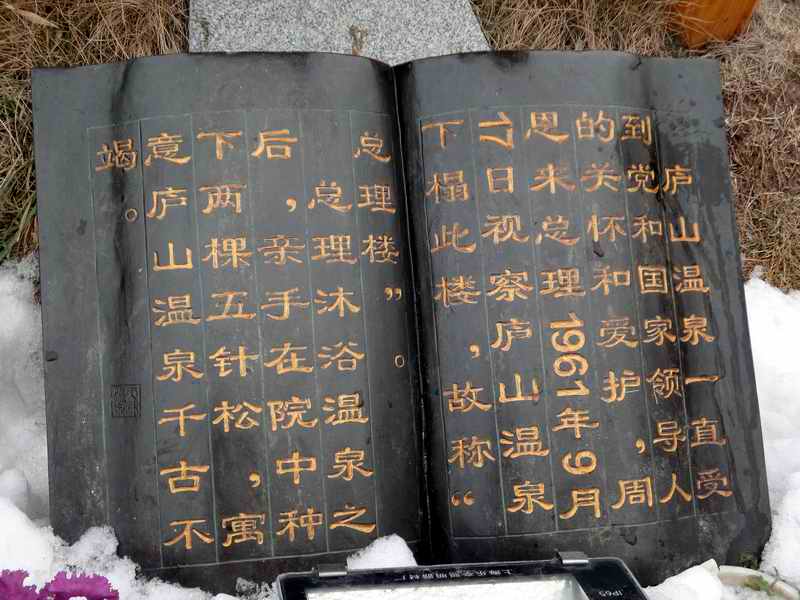 庐山温泉一直受
到党和国家领导人
的关怀和爱护，周
恩来总理1961年9月
17日视察庐山温泉
下榻此楼，故称“
总理楼”。
总理沐浴温泉之
后，亲手在院中种
下两棵五针松，寓
意庐山温泉千古不
竭。
IP65